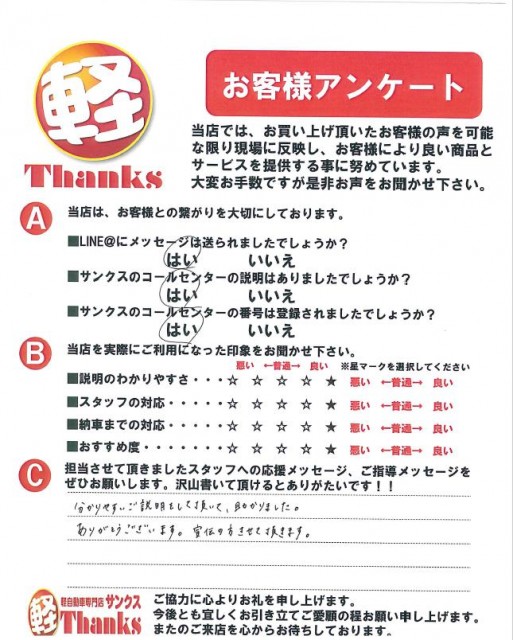 軽
Thanks
お客様アンケート
当店では、お買い上げ頂いたお客様の声を可能
な限り現場に反映し、お客様により良い商品と
サービスを提供する事に努めています。
大変お手数ですが是非お声をお聞かせ下さい。
A 当店は、お客様との繋がりを大切にしております。
■LINE@にメッセージは送られましたでしょうか？
はい いいえ
■サンクスのコールセンターの説明はありましたでしょうか？
はい いいえ
■サンクスのコールセンターの番号は登録されましたでしょうか？
はい いいえ
B 当店を実際にご利用になった印象をお聞かせ下さい。
悪い ←普通→ 良い ※星マークを選択してください
■説明のわかりやすさ・・・・☆ ☆ ☆ ☆ ★ 悪い ←普通→ 良い
■スタッフの対応・・・・・☆ ☆ ☆ ☆ ★ 悪い ←普通→ 良い
■納車までの対応・・・・・☆ ☆ ☆ ☆ ★ 悪い ←普通→ 良い
■おすすめ度・・・・・・・☆ ☆ ☆ ☆ ★ 悪い ←普通→ 良い
C 担当させて頂きましたスタッフへの応援メッセージ、ご指導メッセージを
ぜひお願いします。沢山書いて頂けるとありがたいです！！
分かりやすいご説明をして頂いて、助かりました。
ありがとうございます。宣伝の方させて頂きます。
軽 軽自動車専門店 サンクス
Thanks
ご協力に心よりお礼を申し上げます。
今後とも宜しくお引き立てご愛顧の程お願い申し上げます。
またのご来店を心からお待ちしております。